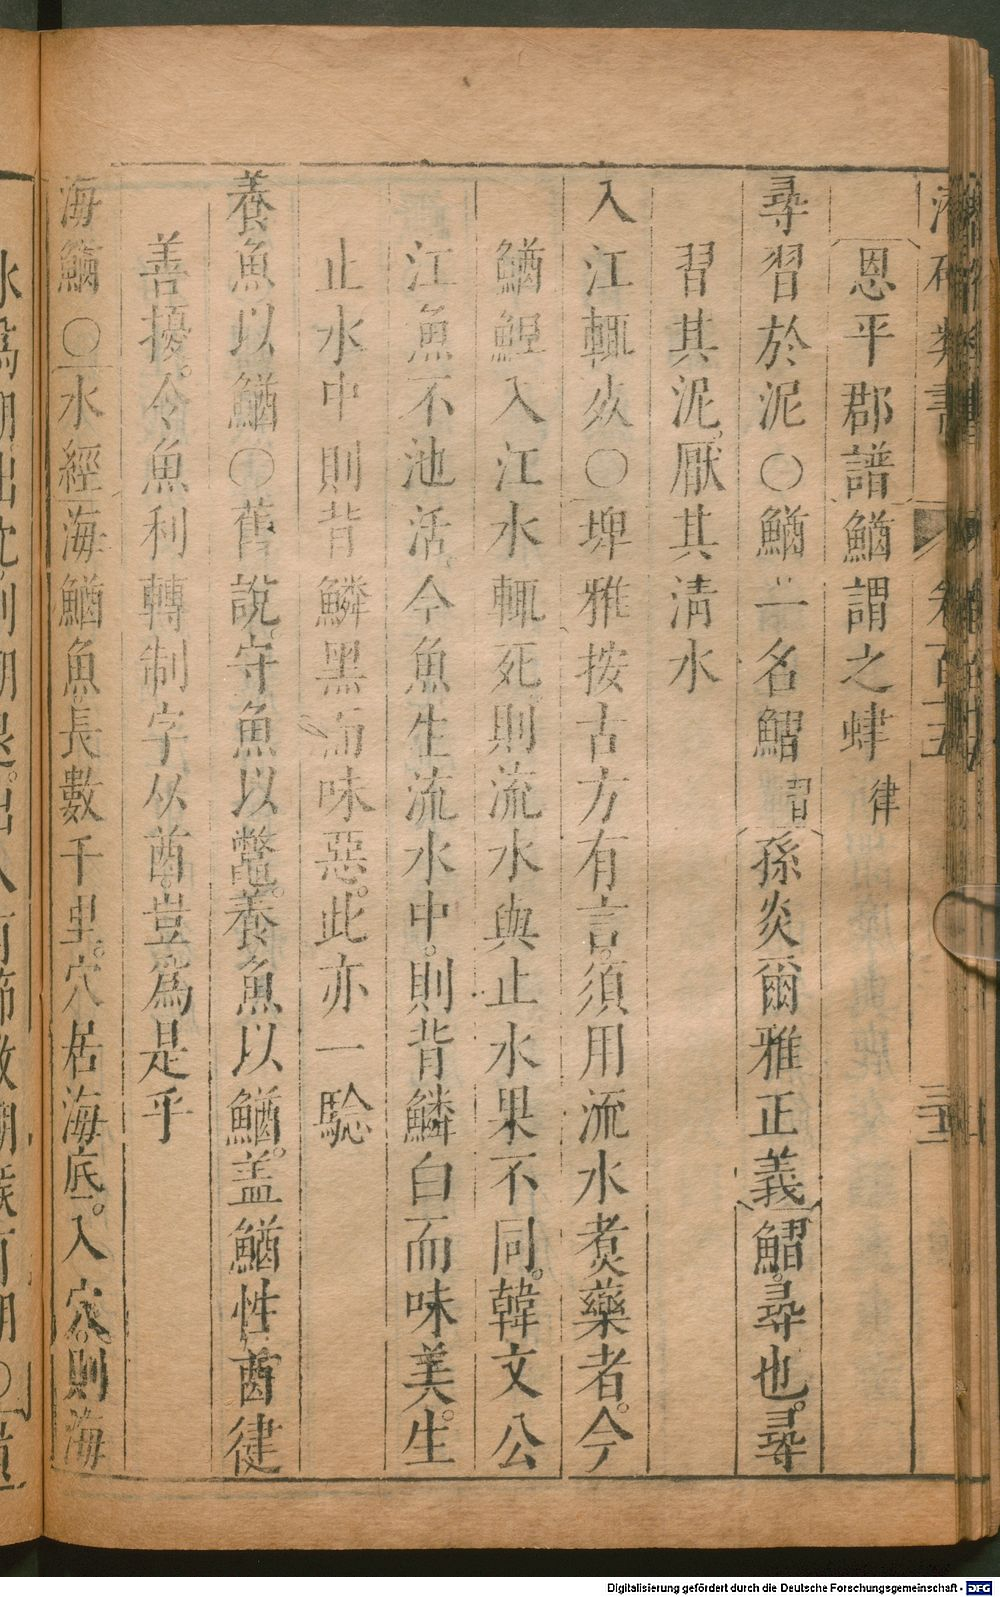 恩平郡譜鰌謂之䖣律
尋習於泥○鰌一名鰼習孫炎爾雅正義鰼。尋也。尋
習其泥。厭其清水
入江輒效○埤雅按古方有言。須用流水煮藥者。今
鰌鯉入江水輒死。則流水與止水果不同。韓文公
江魚不池活。今魚生流水中。則背鱗白而味美。生
止水中則背鱗黑而味惡。此亦一驗
養魚以鰌○舊說。守魚以鼈。養魚以鰌。盖鰌性酋健
善擾。令魚利轉制字从酋。豈為是乎
海鰌○水經海鰌魚。長數千里。穴居海底。入穴。則海
Digitalisierung gefördert durch die Deutsche Forschungsgemeinschaft - DFG